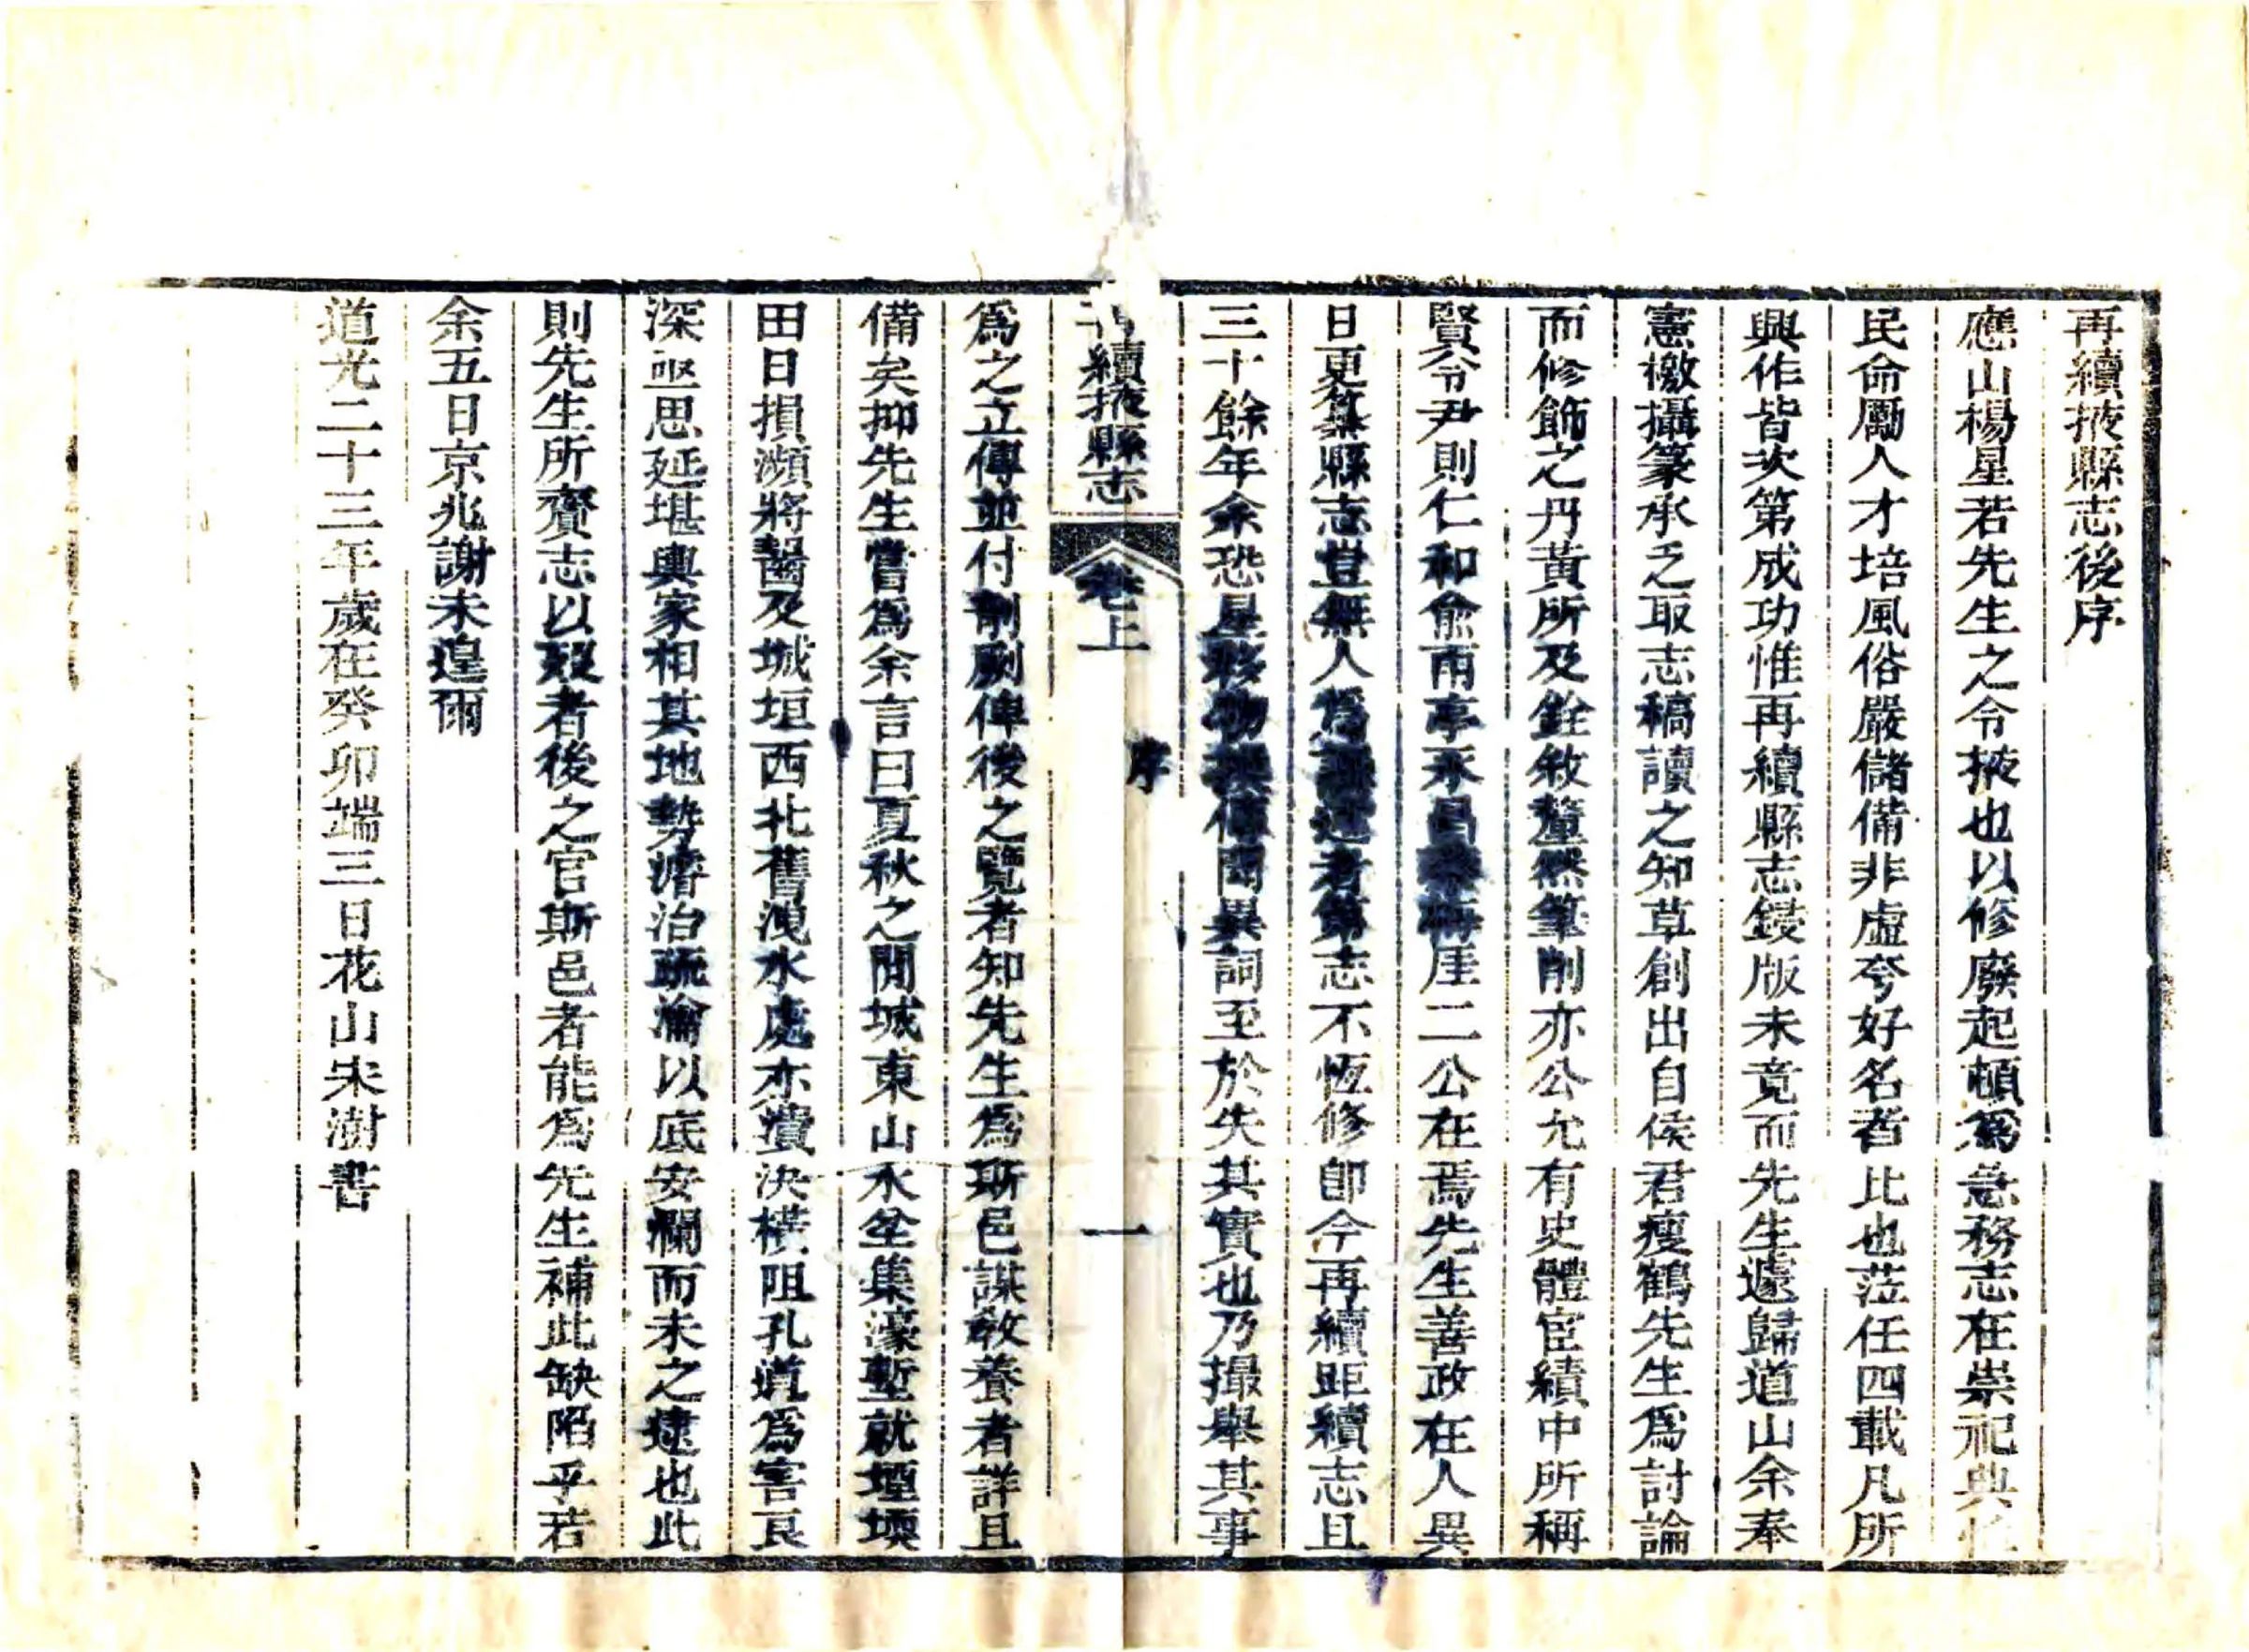 再續掖縣志後序
應山楊星若先生之令掖也以修廢起頓爲急務志在崇祀典
民命勵人才培風俗嚴儲備非虛夸好名者比也蒞任四載凡所
興作皆次第成功惟再續縣志鋟版未竟而先生遽歸道山余奉
憲檄攝篆承乏取志稿讀之知草創出自侯君瘦鶴先生爲討論
而修飾之丹黃所及銓敘釐然筆削亦公允有史體宦績中所稱
賢令尹則仁和俞雨亭永昌厓二公在焉先生善政在人異
日更纂縣志豈無人爲者第志不恆修卽今再續距續志且
三十餘年余恐星移物換傳聞異詞至於失其實也乃撮舉其事
再續掖縣志
卷上
序
一
爲之立傳並付剞劂俾後之覽者知先生爲斯邑謀敎養者詳且
備矣抑先生嘗爲余言曰夏秋之閒城東山水坌集濠塹就堙堧
田日損瀕將齧及城垣西北舊洩水處亦潰決橫阻孔道爲害良
深亟思延堪輿家相其地勢濬治疏瀹以底安瀾而未之逮也此
則先生所齎志以歿者後之官斯邑者能爲先生補此缺陷乎若
余五日京兆謝未遑爾
道光二十三年歲在癸卯端三日花山宋澍書